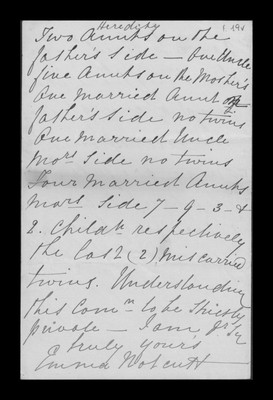 Heredity
Two Aunts on the
father's side — One Uncle
five Aunts on the Mother's
One married Aunt
father's side no twins
One married Uncle
Mors side no twins
Four married Aunts
Mars side 7 - 9 - 3 - &
2. Childn respectively
the last (2) miscarried
twins. Understanding
this comn to be strictly
private — I am
truly yours
Emma Wolcutt